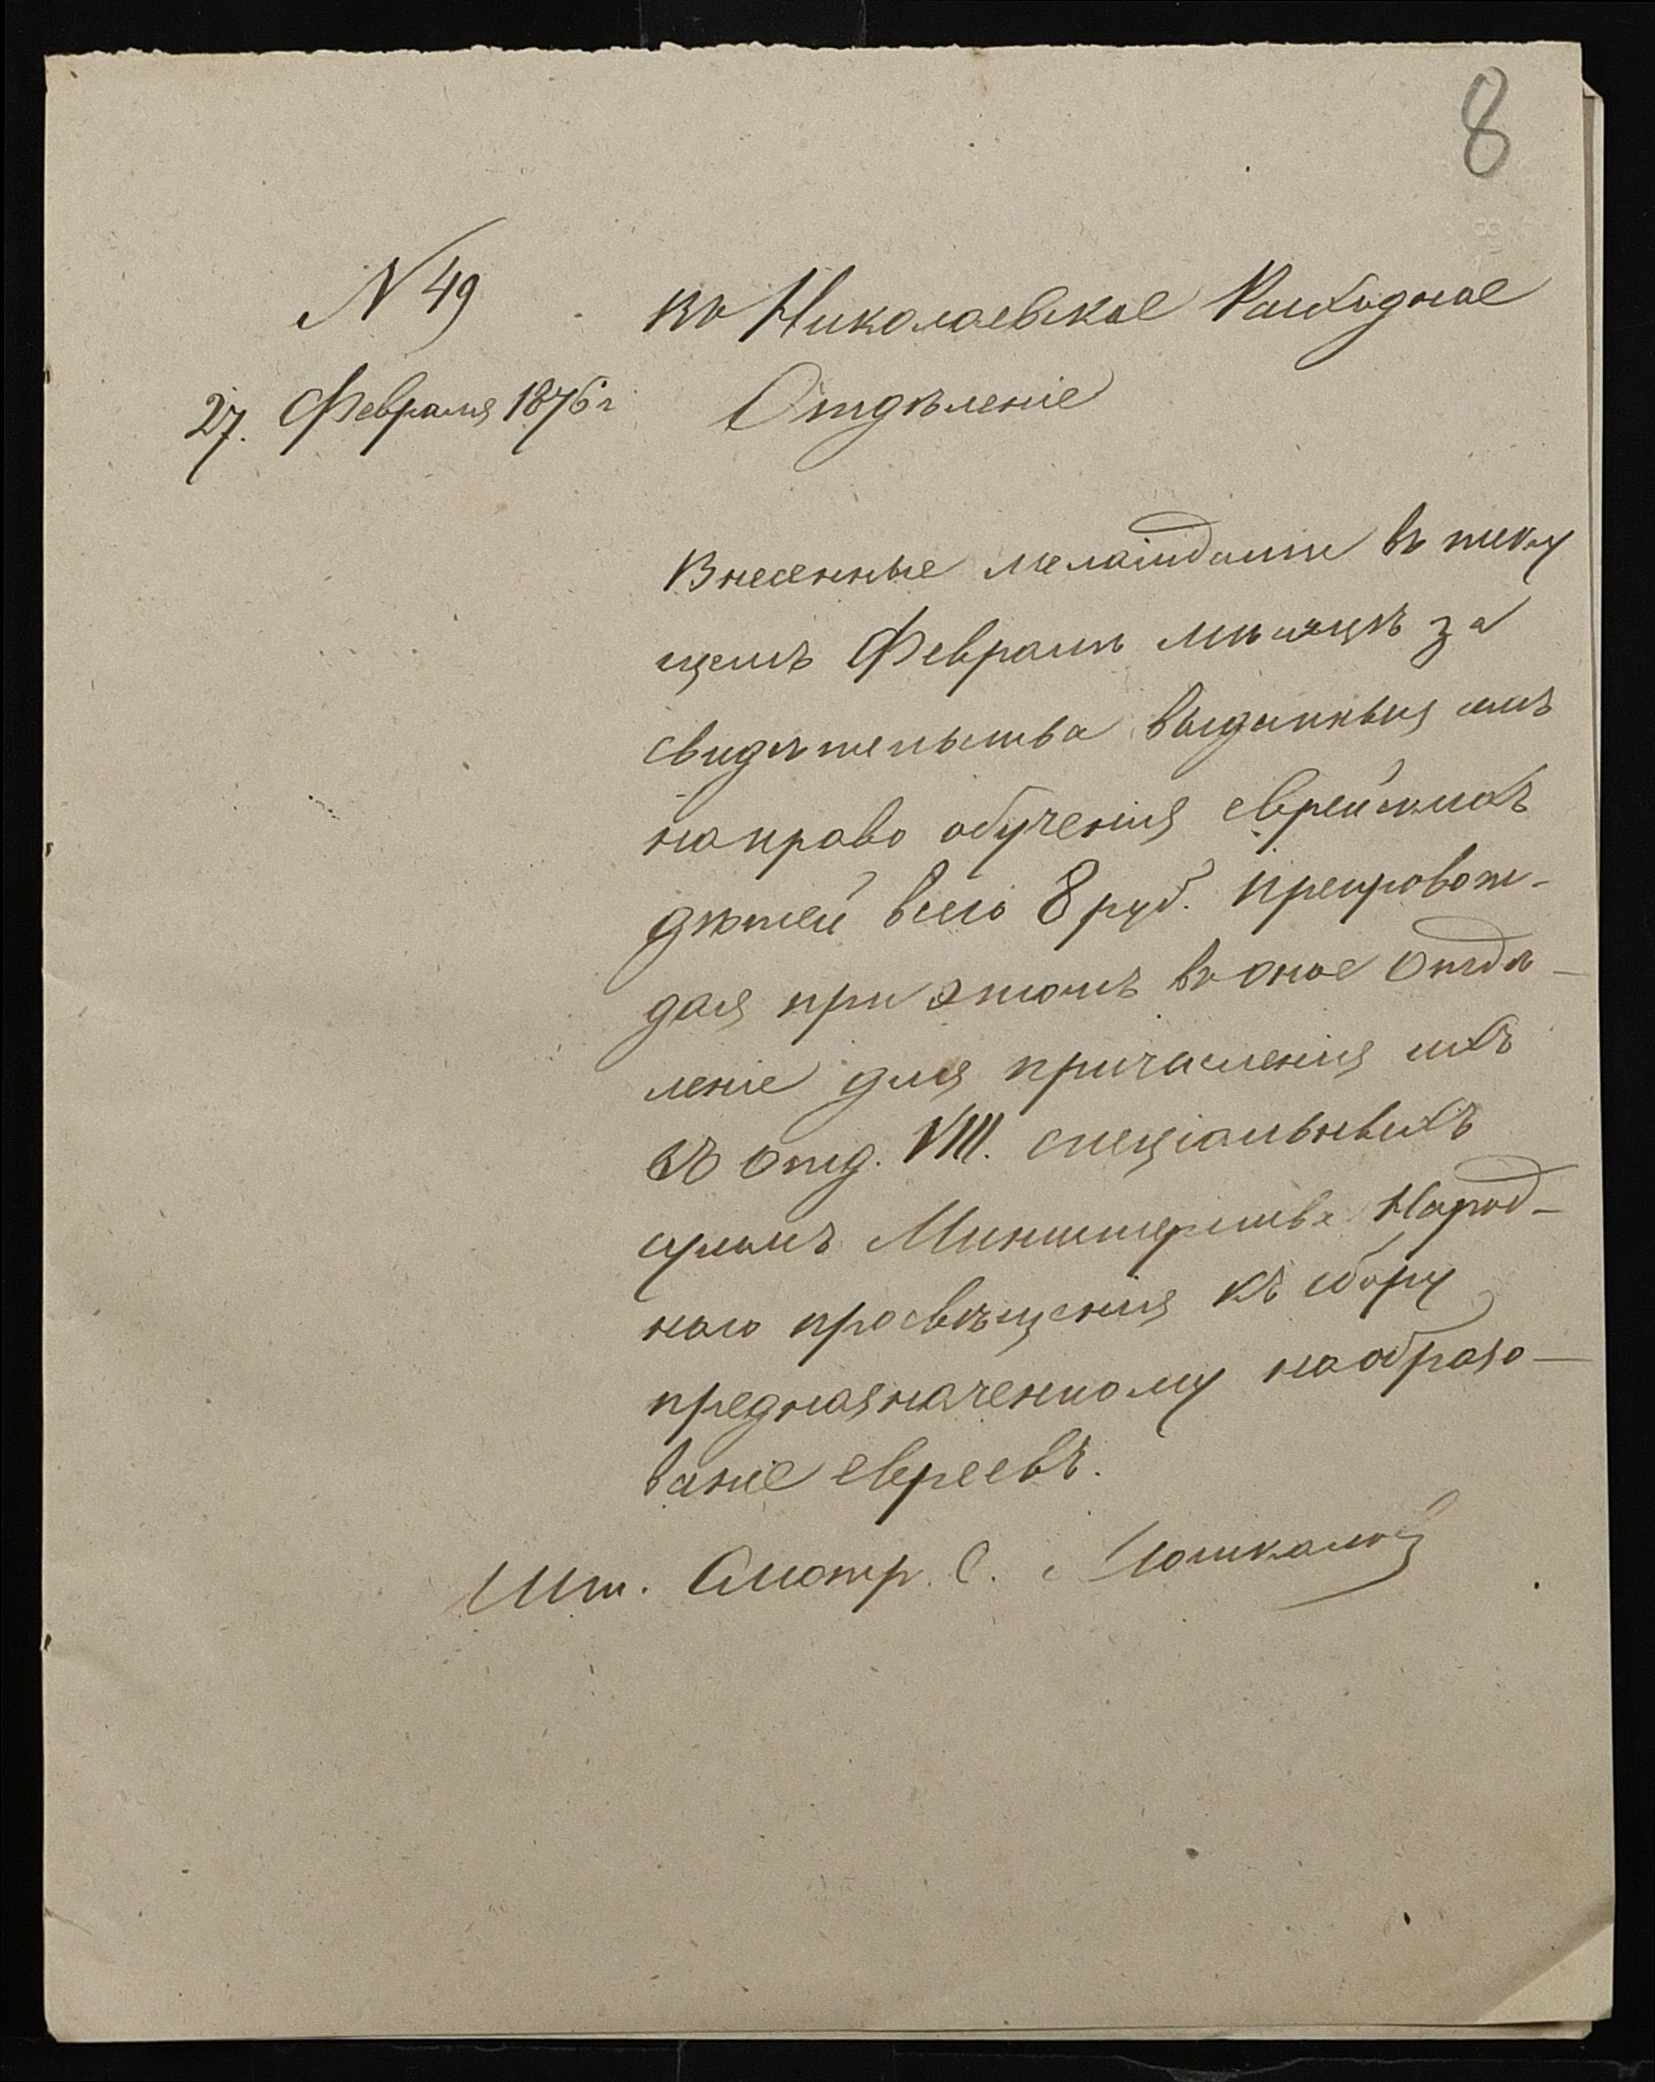 8
N 49
Въ Николаевское Расходное
27. Февраля 1876 г
Отдѣленіе
Внесенные меламдами въ теку
щемъ Февралѣ мѣсяцѣ за
свидѣтельства выданныя имъ
на право обученія еврейскихъ
дѣтей всего 8 руб. препровож-
дая при этомъ въ оное Отдѣ-
леніе для причисленія ихъ
къ отд. VIII. спеціальныхъ
суммъ Министерства Народ-
наго просвѣщенія къ сбору
предназначенному на образо-
ваніе евреевъ.
Шт. Смотр. С.